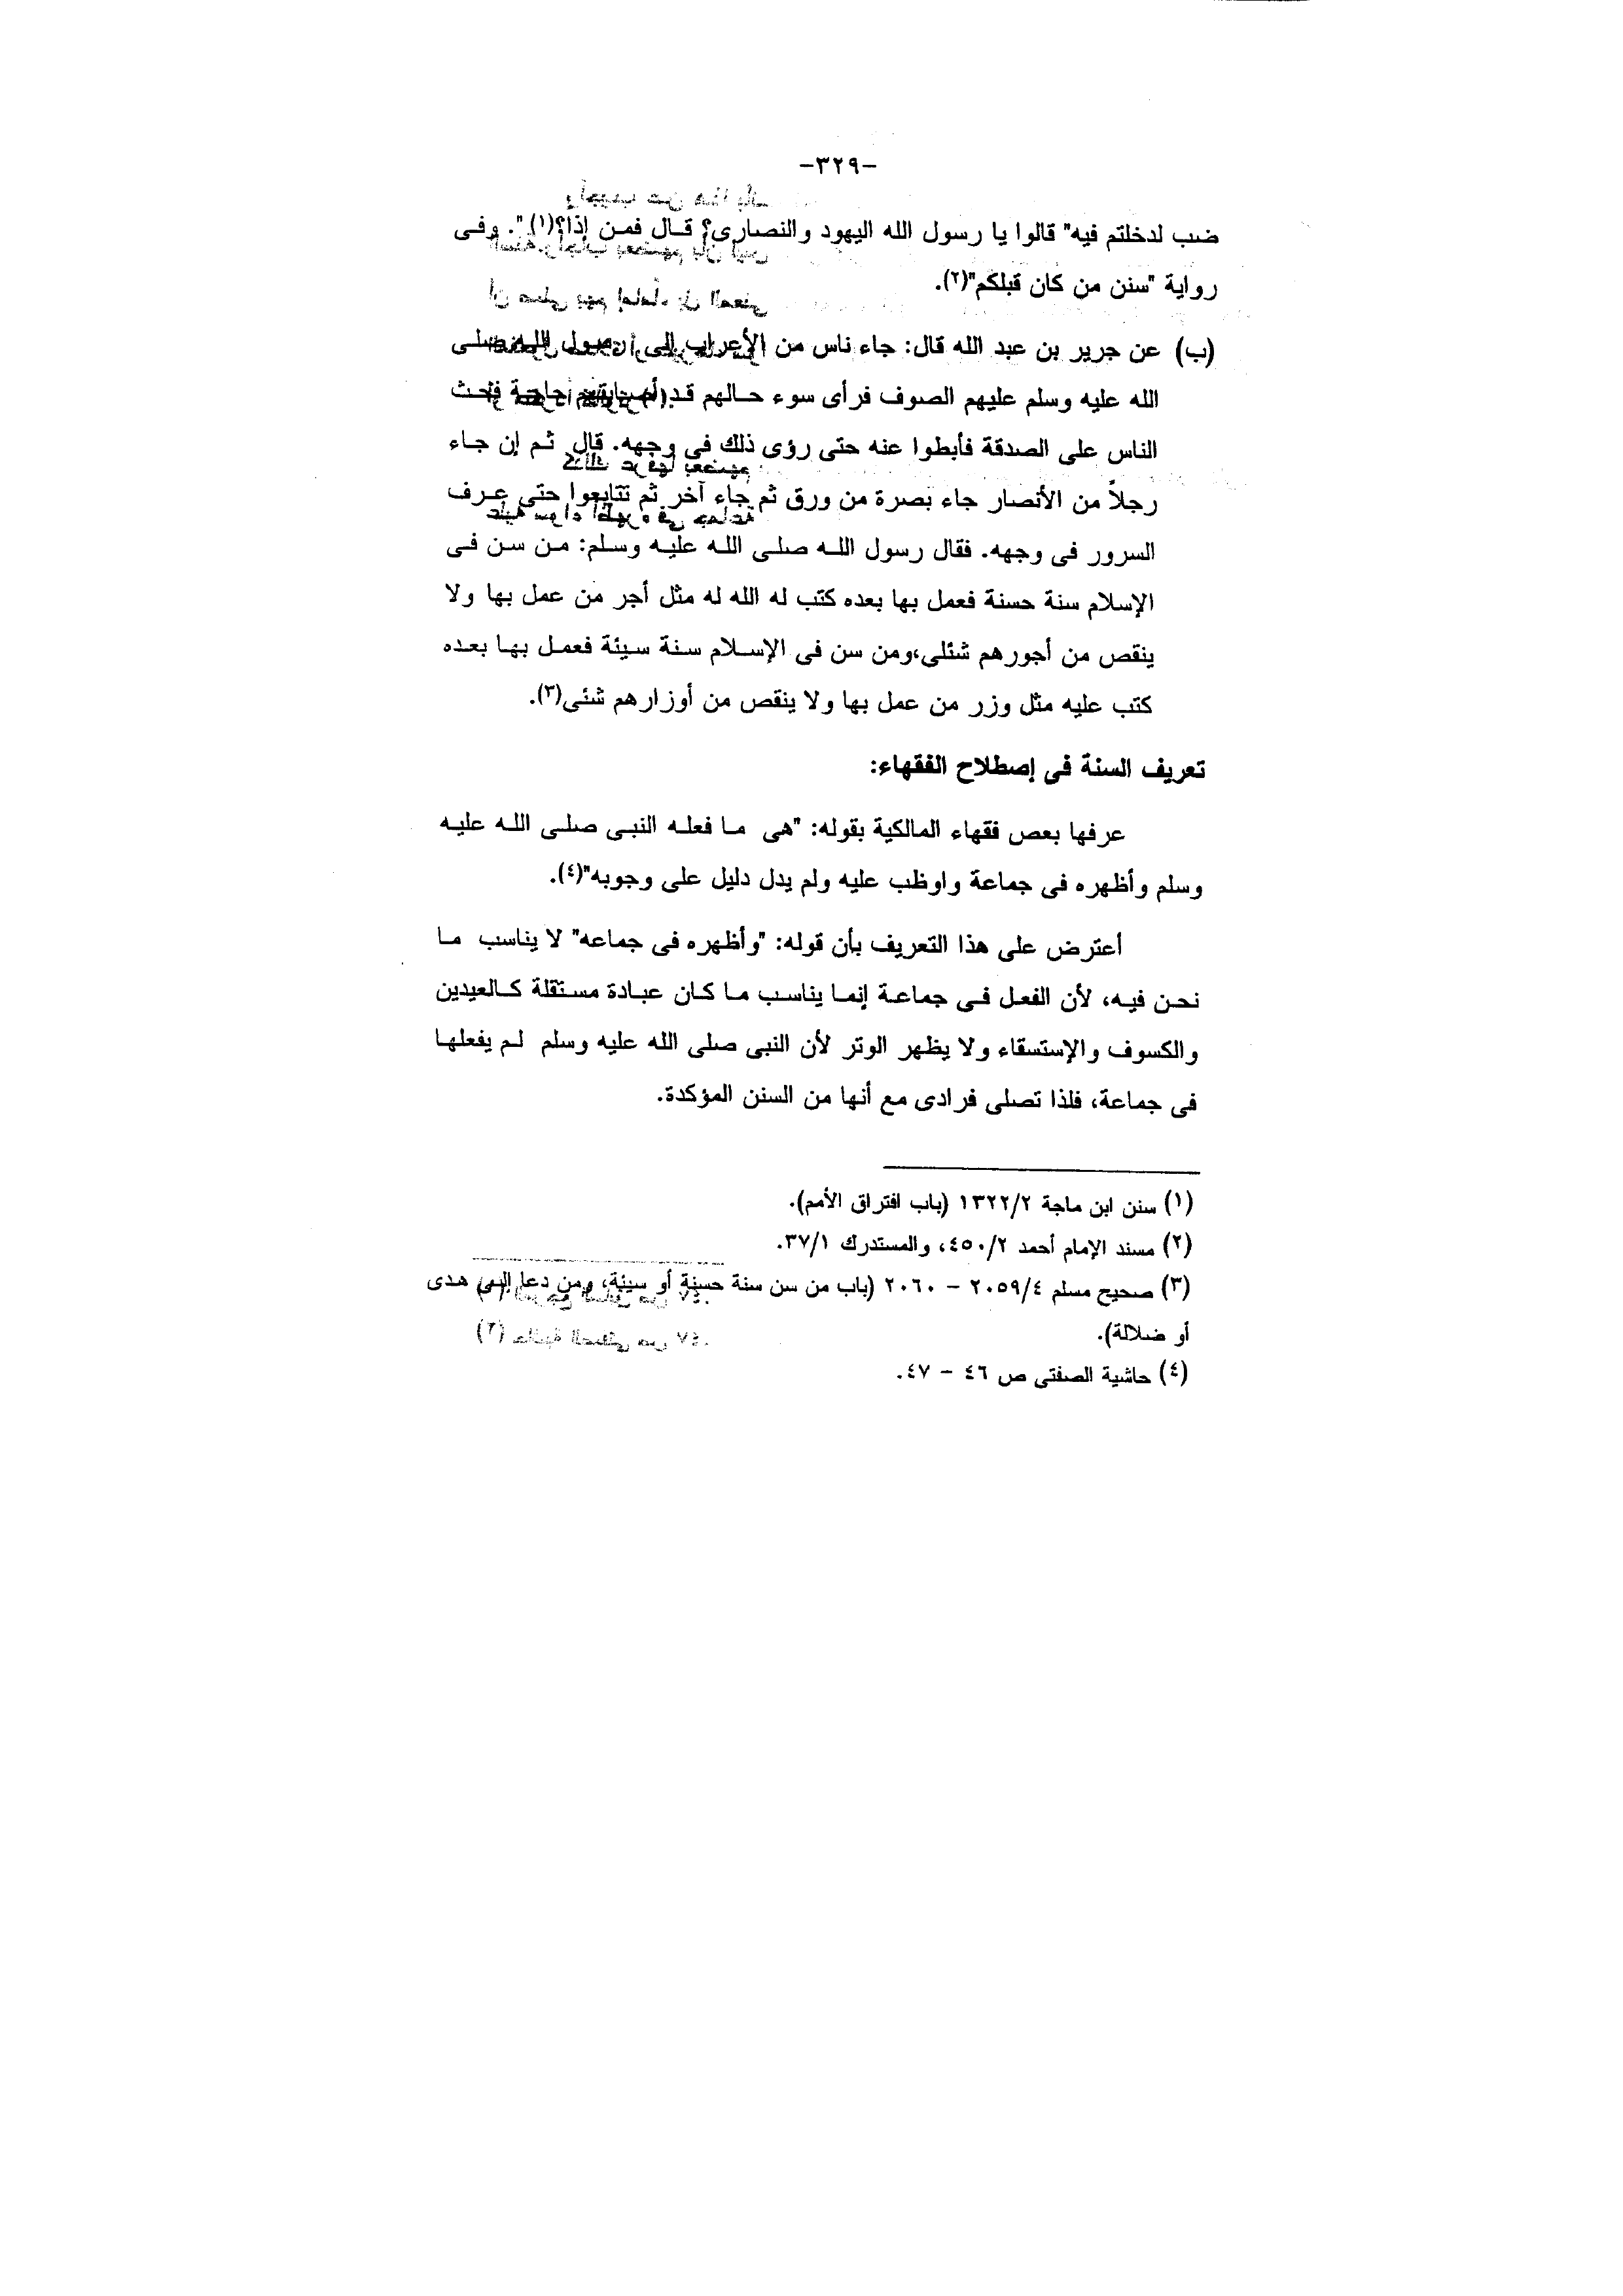 -٣٢٩-
ضب لدخلتم فيه" قالوا يا رسول الله اليهود والنصارى؟ قال فمن إذا؟(١)". وفى
رواية "سنن من كان قبلكم"(٢).
(ب) عن جرير بن عبد الله قال: جاء ناس من الأعراب إلى رسول الله صلى
الله عليه وسلم عليهم الصوف فرأى سوء حالهم قد أصابتهم حاجة فحث
الناس على الصدقة فأبطوا عنه حتى رؤى ذلك فى وجهه. قال ثم إن جاء
رجلاً من الأنصار جاء بصرة من ورق ثم جاء آخر ثم تتابعوا حتى عرف
السرور فى وجهه. فقال رسول الله صلى الله عليه وسلم: من سن فى
الإسلام سنة حسنة فعمل بها بعده كتب له الله له مثل أجر من عمل بها ولا
ينقص من أجورهم شئلى،ومن سن فى الإسلام سنة سيئة فعمل بها بعده
كتب عليه مثل وزر من عمل بها ولا ينقص من أوزارهم شئى(٣).
تعريف السنة فى إصطلاح الفقهاء:
عرفها بعض فقهاء المالكية بقوله: "هى ما فعله النبى صلى الله عليه
وسلم وأظهره فى جماعة واوظب عليه ولم يدل دليل على وجوبه"(٤).
أعترض على هذا التعريف بأن قوله: "وأظهره فى جماعه" لا يناسب ما
نحن فيه، لأن الفعل فى جماعة إنما يناسب ما كان عبادة مستقلة كالعيدين
والكسوف والإستسقاء ولا يظهر الوتر لأن النبى صلى الله عليه وسلم لم يفعلها
فى جماعة، فلذا تصلى فرادى مع أنها من السنن المؤكدة.
(١) سنن ابن ماجة ١٣٢٢/٢ (باب افتراق الأمم).
(٢) مسند الإمام أحمد ٤٥٠/٢، والمستدرك ٣٧/١.
(٣) صحيح مسلم ٢٠٥٩/٤ - ٢٠٦٠ (باب من سن سنة حسنة أو سيئة، ومن دعا إلى هدى
أو ضلالة).
(٤) حاشية الصفتى ص ٤٦ - ٤٧.